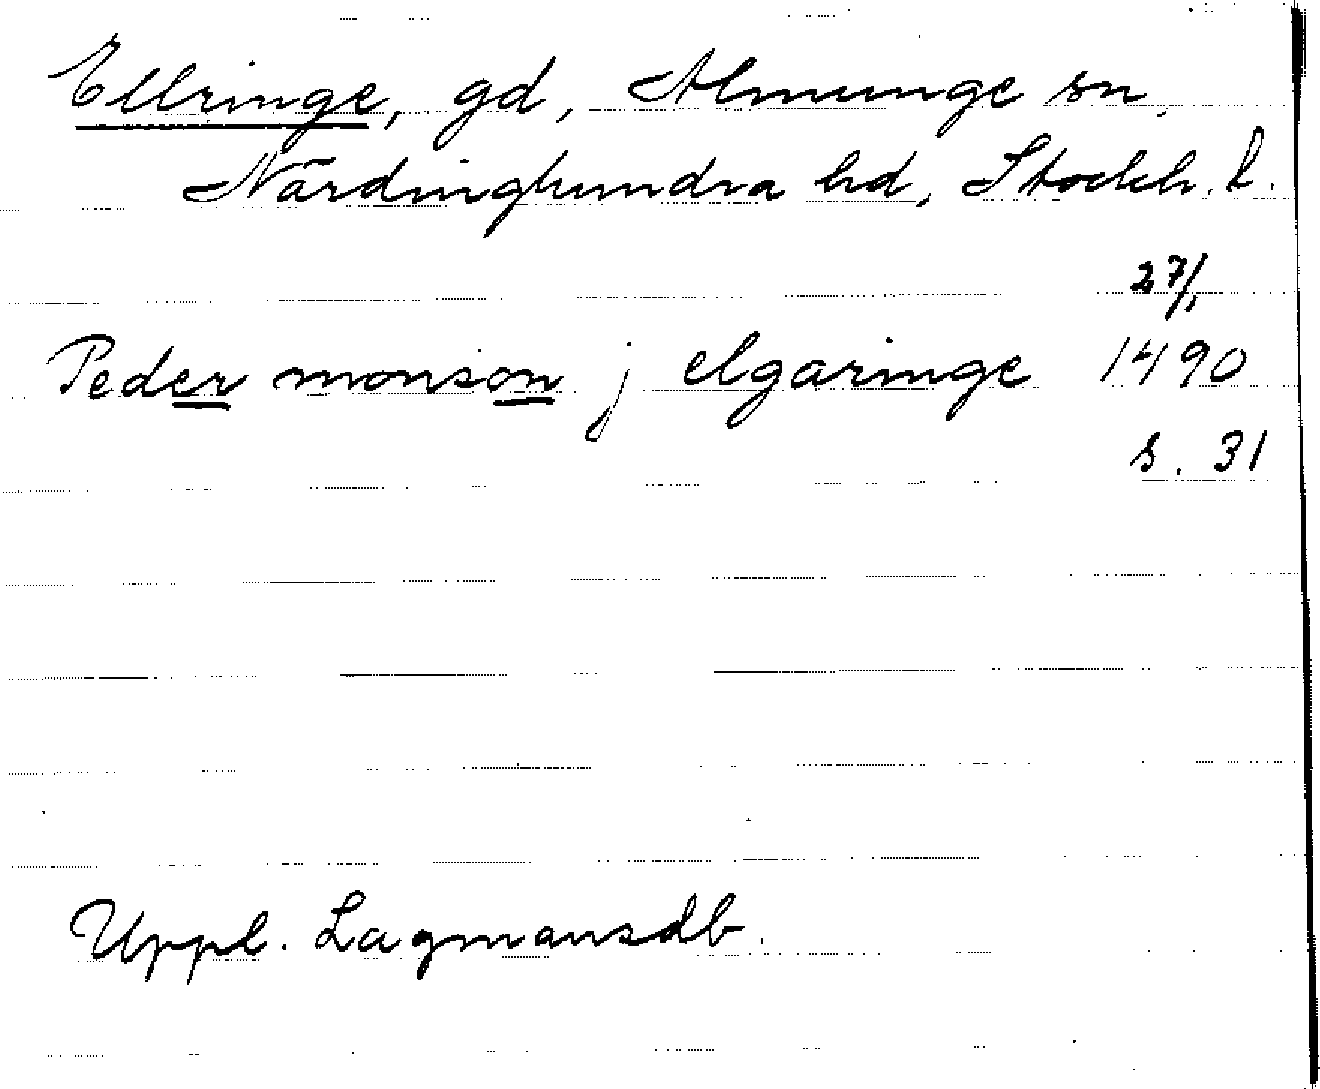 Ellringe, gd, Almunge sn
Närdinghundra hd, Stockh. l.
27/1
Peder monson j elgaringe 1490
s. 31
Uppl. Lagmansdb.